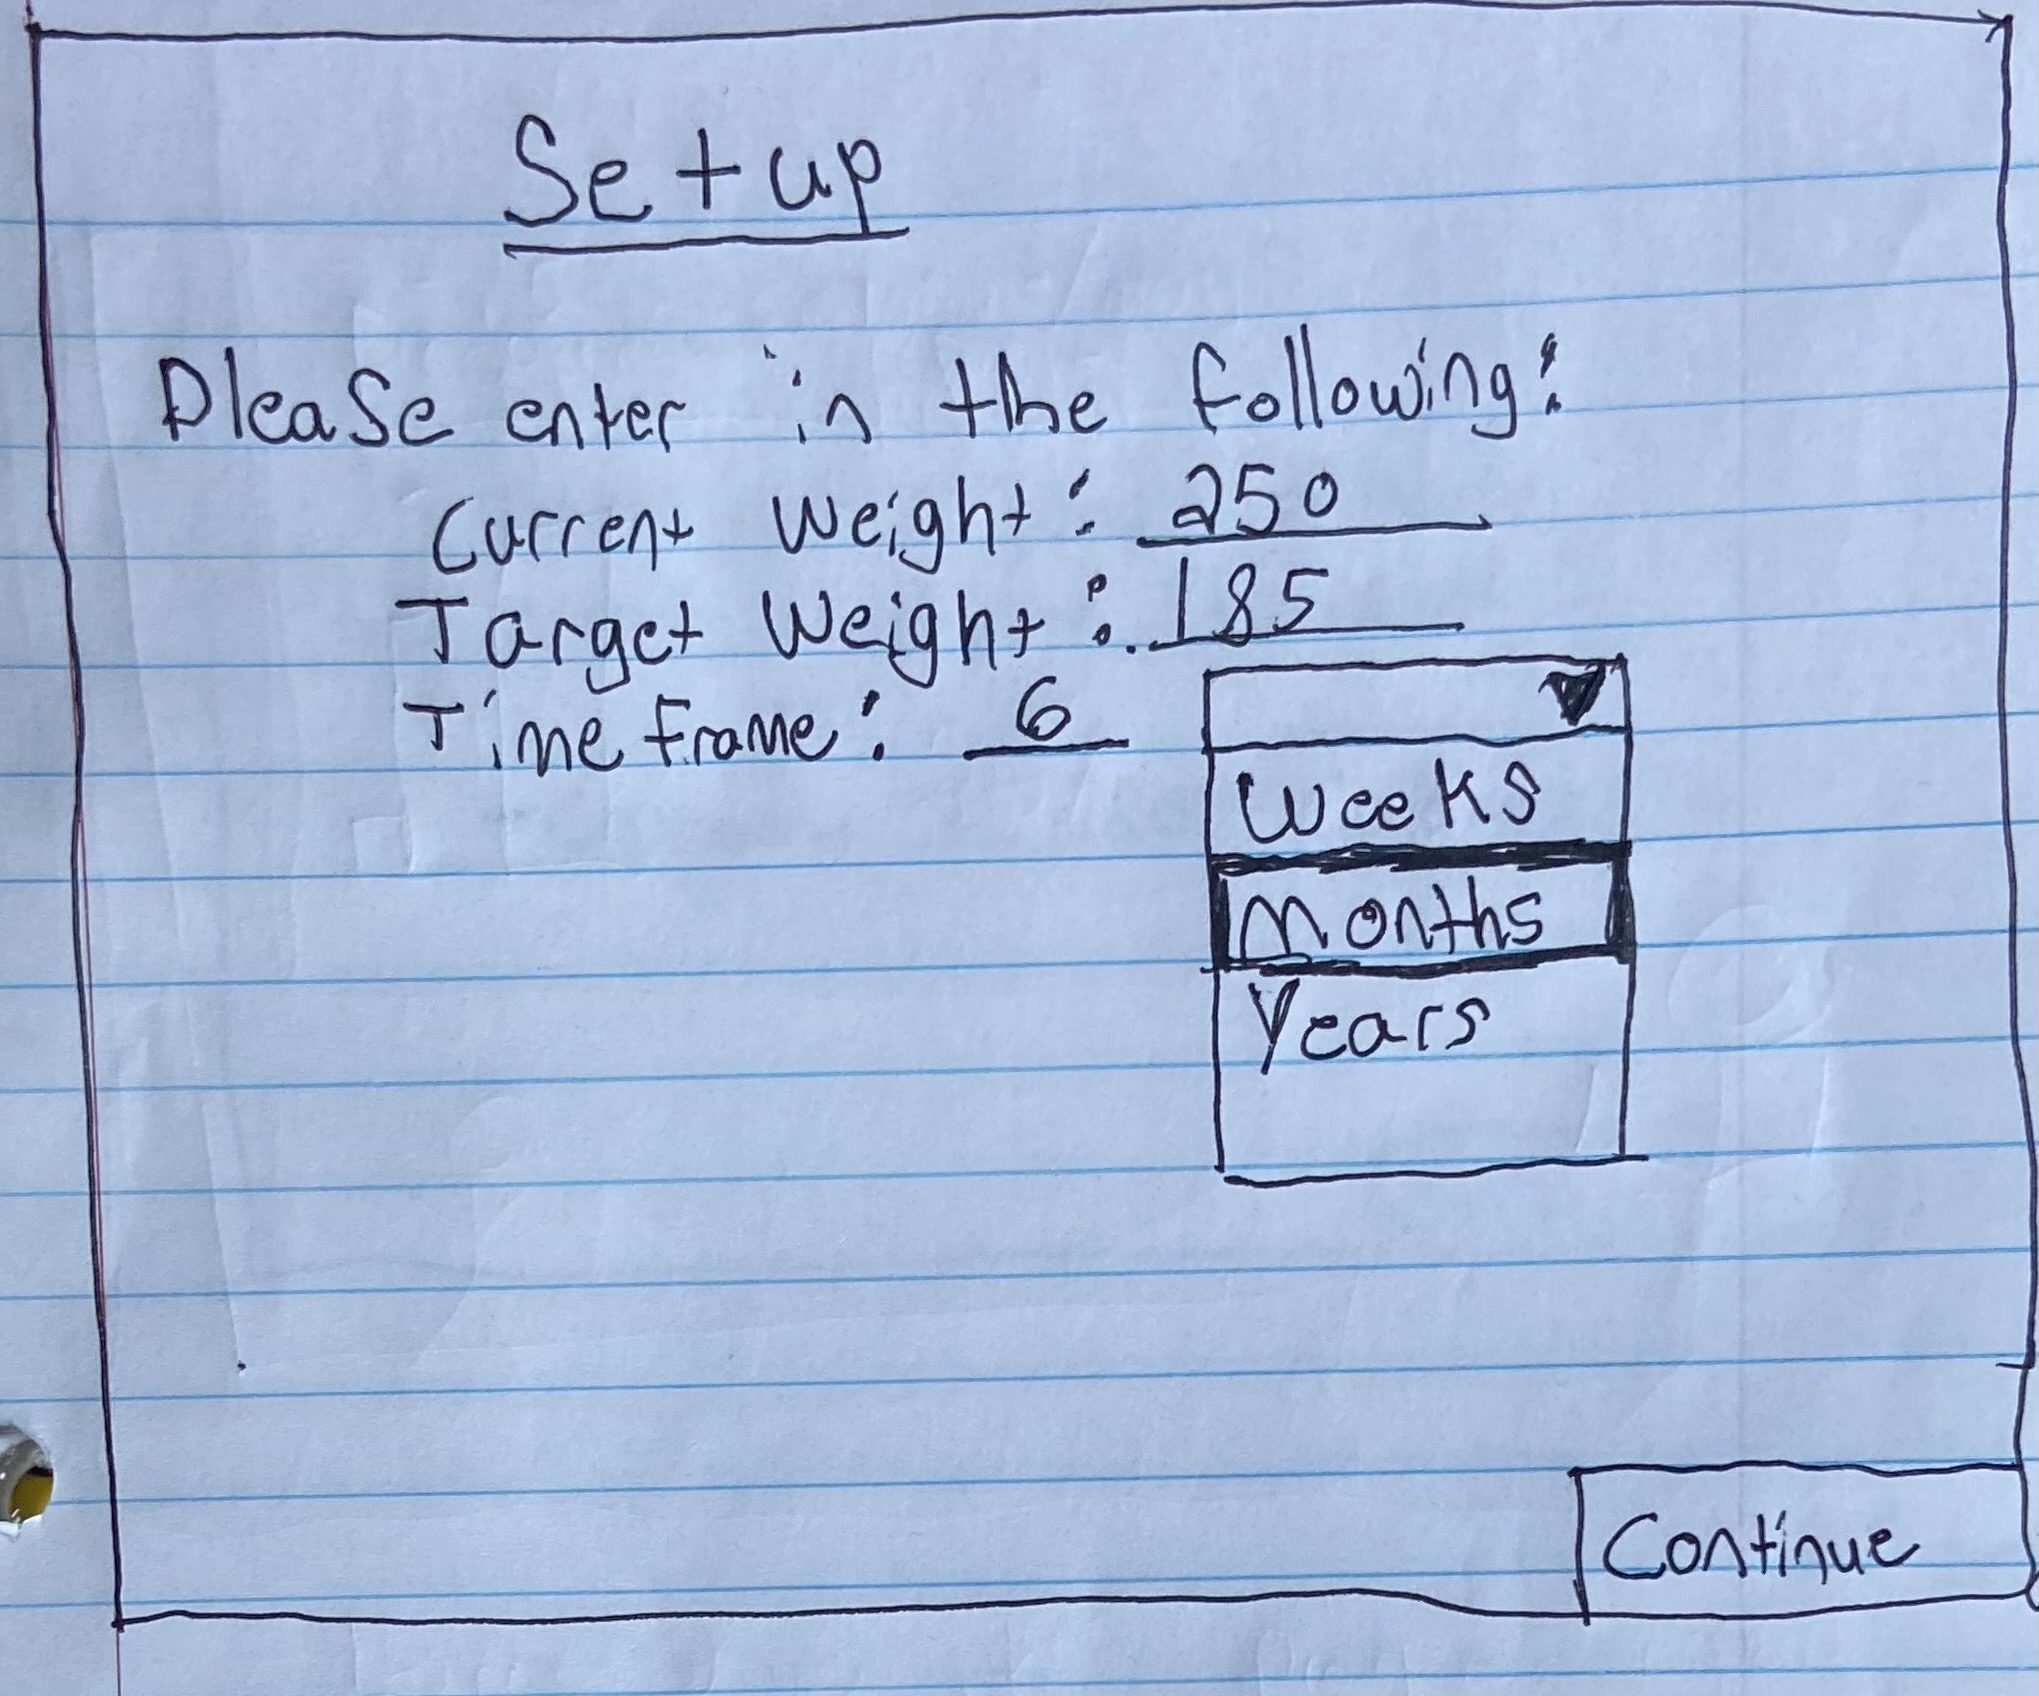 Setup
Please enter in the following:
Current Weight: 250
Target Weight: 185
Time Frame: 6
Weeks
Months
Years
Continue